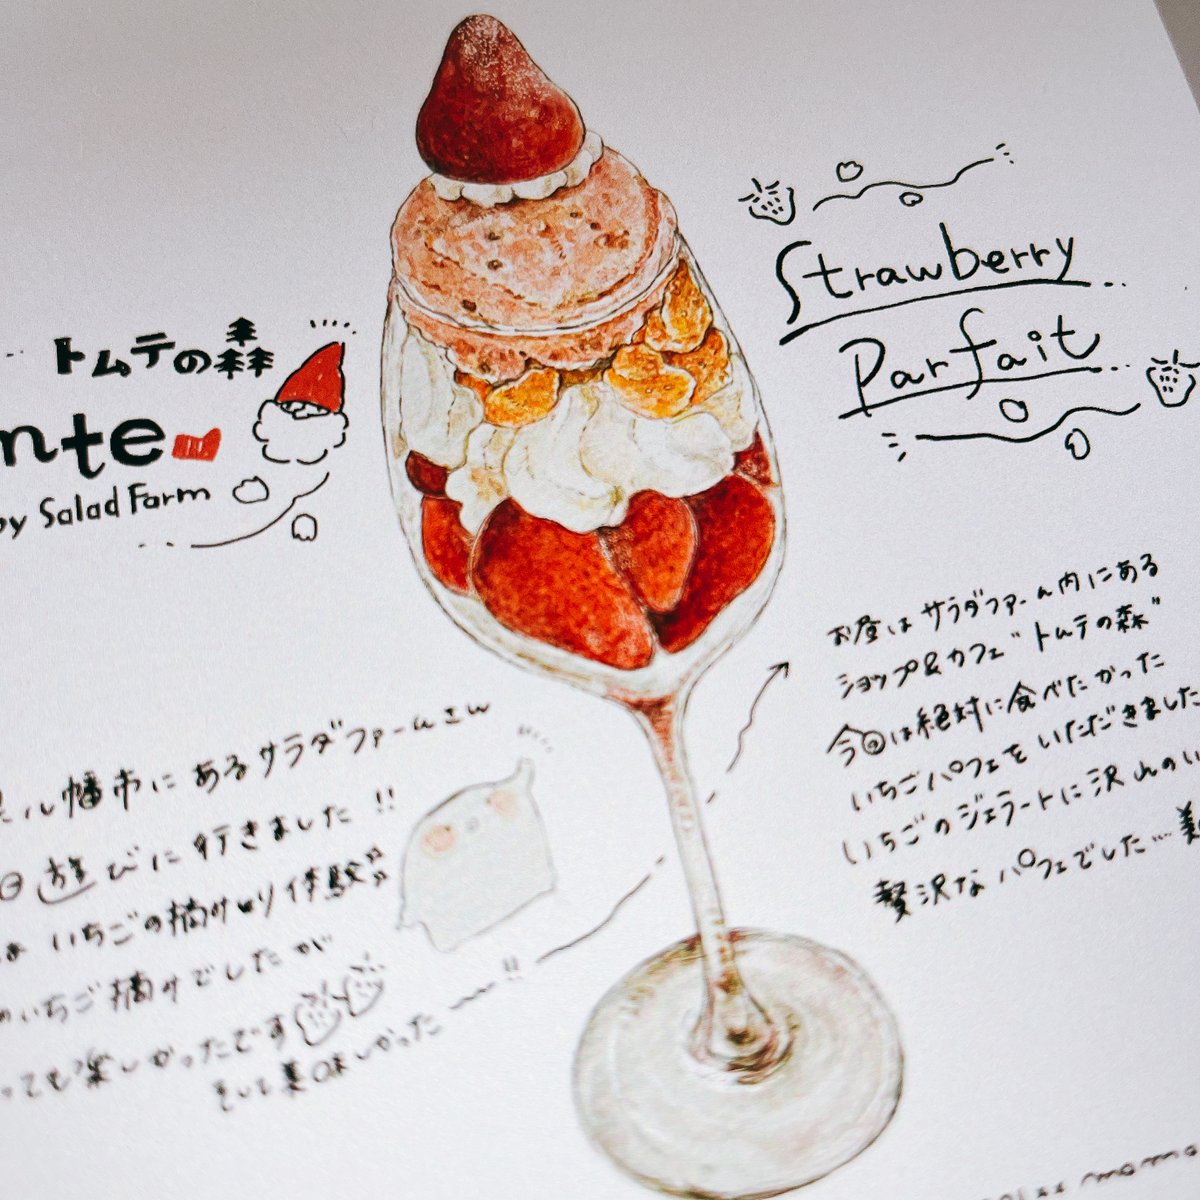 トムテの森
nte
by Salad Farm
Strawberry
Parfait
お昼は サラダファーム内にある
ショップ&カフェ"トムテの森"
今回は絶対に食べたかった
いちごパフェを いただきました
いちごのジェラートに沢山のい
贅沢な パフェでした…美
八幡市に あるサラダファームさん
日 遊びに行きました!!
は いちごの摘み取り体験
いちご摘みでしたが
っても楽しかったです
そして美味しかったー!!